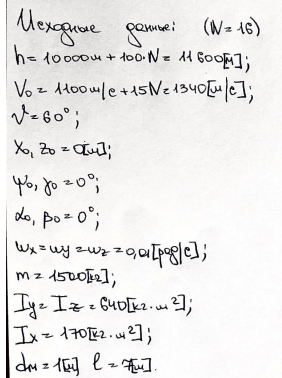 Исходные данные: (N=16)
h=10000м+100·N=11600[м];
V₀=1100м/с+15N=1340[м/с];
ϑ=60°;
x₀, z₀=0[м];
ψ₀, γ₀=0°;
α₀, β₀=0°;
ωx=ωy=ωz=0,01[рад/с];
m=1500[кг];
Iy=Iz=640[кг·м²];
Ix=170[кг·м²];
dм=1[м] l=7[м].